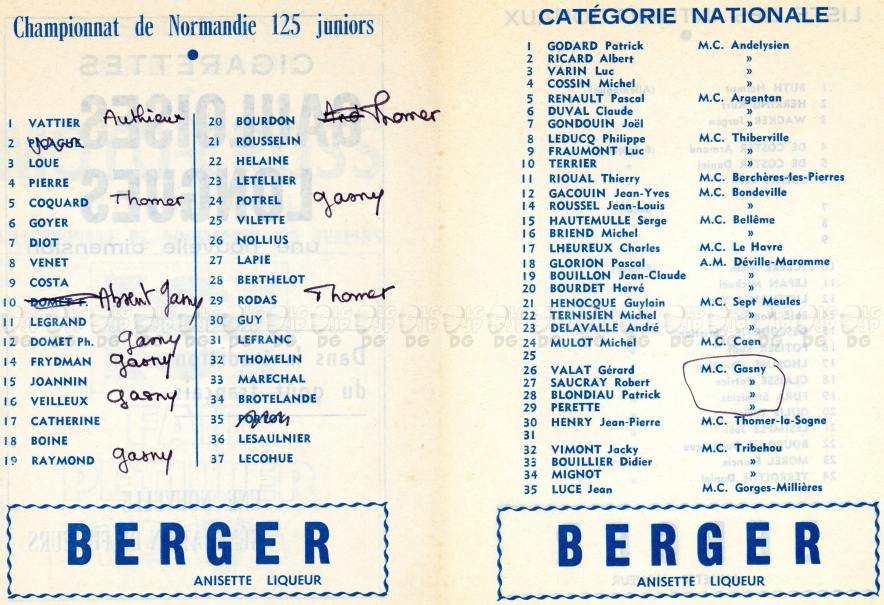 Championnat de Normandie 125 juniors
1 VATTIER Authieux
2
3 LOUE
4 PIERRE
5 COQUARD Thomer
6 GOYER
7 DIOT
8 VENET
9 COSTA
10 DOMET F. Absent Gasny
11 LEGRAND
12 DOMET Ph. Gasny
14 FRYDMAN Gasny
15 JOANNIN
16 VEILLEUX Gasny
17 CATHERINE
18 BOINE
19 RAYMOND Gasny
20 BOURDON Thomer
21 ROUSSELIN
22 HELAINE
23 LETELLIER
24 POTREL Gasny
25 VILETTE
26 NOLLIUS
27 LAPIE
28 BERTHELOT
29 RODAS Thomer
30 GUY
31 LEFRANC
32 THOMELIN
33 MARECHAL
34 BROTELANDE
35
36 LESAULNIER
37 LECOHUE
BERGER
ANISETTE LIQUEUR
CATÉGORIE NATIONALE
1 GODARD Patrick M.C. Andelysien
2 RICARD Albert »
3 VARIN Luc »
4 COSSIN Michel »
5 RENAULT Pascal M.C. Argentan
6 DUVAL Claude »
7 GONDOUIN Joël »
8 LEDUCQ Philippe M.C. Thiberville
9 FRAUMONT Luc »
10 TERRIER »
11 RIOUAL Thierry M.C. Berchères-les-Pierres
12 GACOUIN Jean-Yves M.C. Bondeville
14 ROUSSEL Jean-Louis »
15 HAUTEMULLE Serge M.C. Bellême
16 BRIEND Michel »
17 LHEUREUX Charles M.C. Le Havre
18 GLORION Pascal A.M. Déville-Maromme
19 BOUILLON Jean-Claude »
20 BOURDET Hervé »
21 HENOCQUE Guylain M.C. Sept Meules
22 TERNISIEN Michel »
23 DELAVALLE André »
24 MULOT Michel M.C. Caen
25
26 VALAT Gérard M.C. Gasny
27 SAUCRAY Robert »
28 BLONDIAU Patrick »
29 PERETTE »
30 HENRY Jean-Pierre M.C. Thomer-la-Sogne
31
32 VIMONT Jacky M.C. Tribehou
33 BOUILLIER Didier »
34 MIGNOT »
35 LUCE Jean M.C. Gorges-Millières
BERGER
ANISETTE LIQUEUR